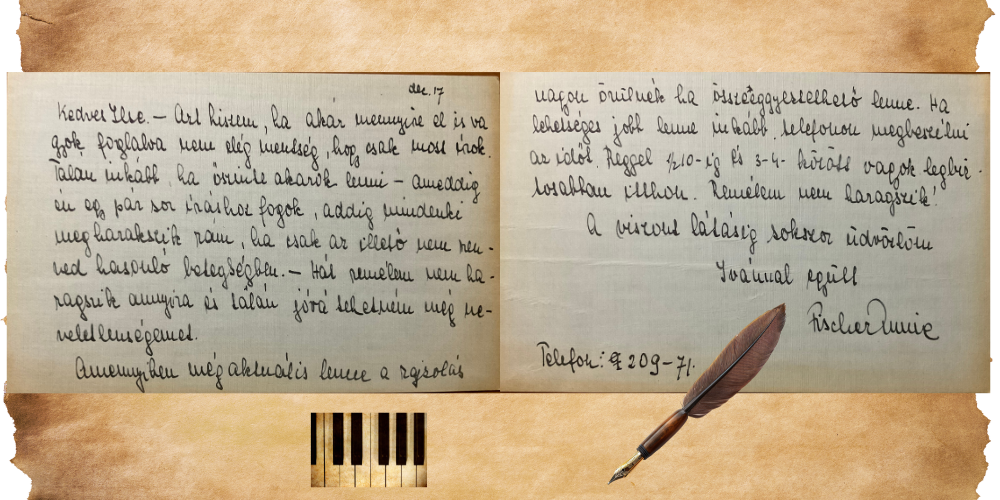 dec. 17
Kedves Ilse. – Azt hiszem, ha akár mennyire el is va
gyok foglalva nem elég mentség, hogy csak most írok.
Talán inkább, ha őszinte akarok lenni – ameddig
én egy pár sor íráshoz fogok, addig mindenki
megharakszik rám, ha csak az illető nem szen-
ved hasonló betegségben. – Hát remélem nem ha-
ragszik annyira és talán jóvá tehetném még ne-
veletlenségemet.
Amennyiben még aktuális lenne a rajzolás
nagyon örülnék ha összeeggyeztethető lenne. Ha
lehetséges jobb lenne inkább telefonon megbeszélni
az időt. Reggel ½10-ig és 3-4- között vagyok legbiz-
tosabban itthon. Remélem nem haragszik!
A viszont látásig sokszor üdvözlöm
Ivánnal együtt
Fischer Annie
Telefon: 209-71.